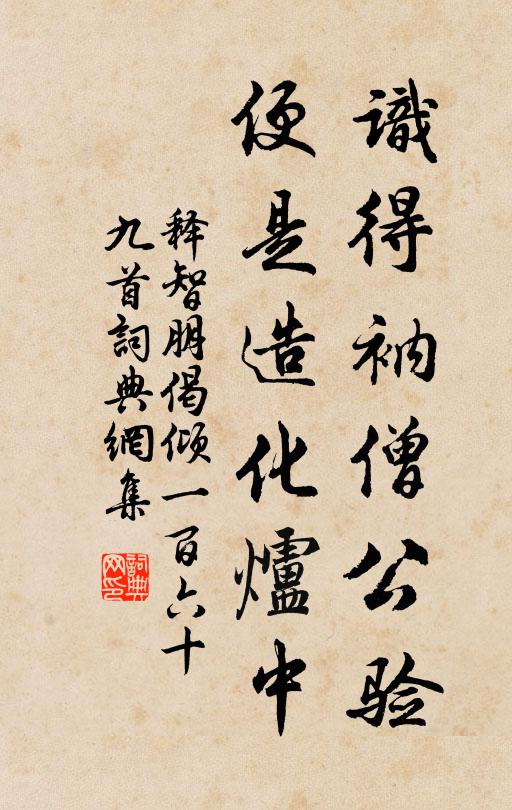 識得衲僧公验
便是造化爐中
释智朋偈倾一百六十
九首詞典網集
詞典网印